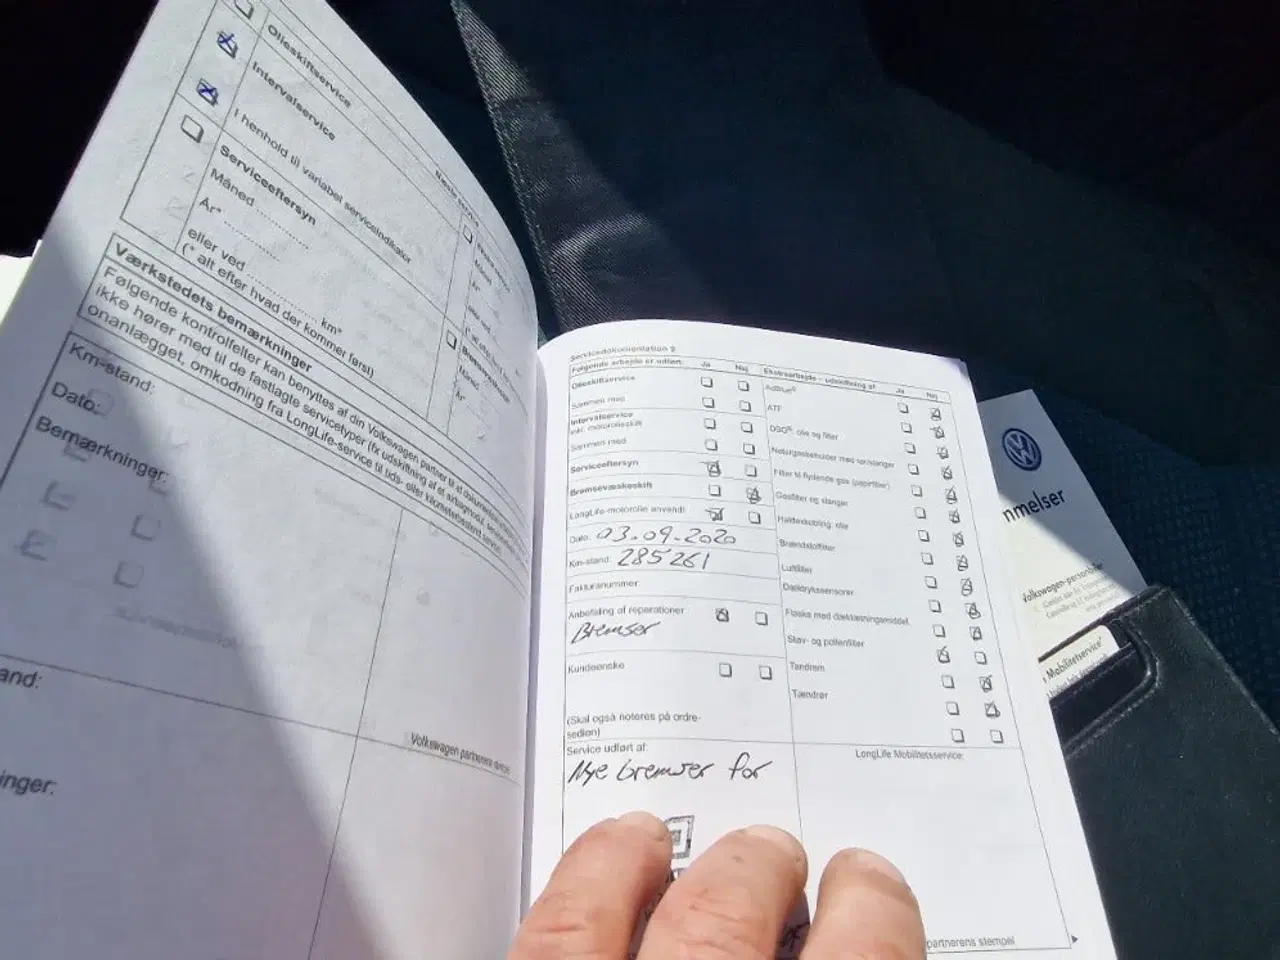 Olieskiftservice
Intervalservice
I henhold til variabel serviceindikator
Serviceeftersyn
Måned
År*
eller ved ............ km*
(* alt efter hvad der kommer først)
Værkstedets bemærkninger
Følgende kontrolfelter kan benyttes af din Volkswagen partner til at
ikke hører med til de fastlagte servicetyper (fx udskiftning af
onanlægget, omkodning fra LongLife-service til tids- eller
Km-stand:
Dato:
Bemærkninger:
Volkswagen partnerens
and:
inger:
Servicedokumentation 9
Følgende arbejde er udført: Ja Nej
Olieskiftservice
Sammen med
Intervalservice
inkl. motorolieskift
Sammen med
Serviceeftersyn
Bremsevæskeskift
LongLife-motorolie anvendt
Dato: 03.09.2020
Km-stand: 285261
Fakturanummer:
Anbefaling af reparationer
Bremser
Kundeønske
(Skal også noteres på ordre-
sedlen)
Service udført af:
Nye bremser for
Ekstraarbejde – udskiftning af Ja Nej
AdBlue®
ATF
DSG®: olie og filter
Naturgasbeholder med rør/slanger
Filter til flydende gas (papirfilter)
Gasfilter og slanger
Haldexkobling: olie
Brændstoffilter
Luftfilter
Dæktrykssensorer
Flaske med dæktætningsmiddel
Støv- og pollenfilter
Tandrem
Tændrør
LongLife Mobilitetsservice:
partnerens stempel
mmelser
Volkswagen-personbiler
Mobilitetsservice"